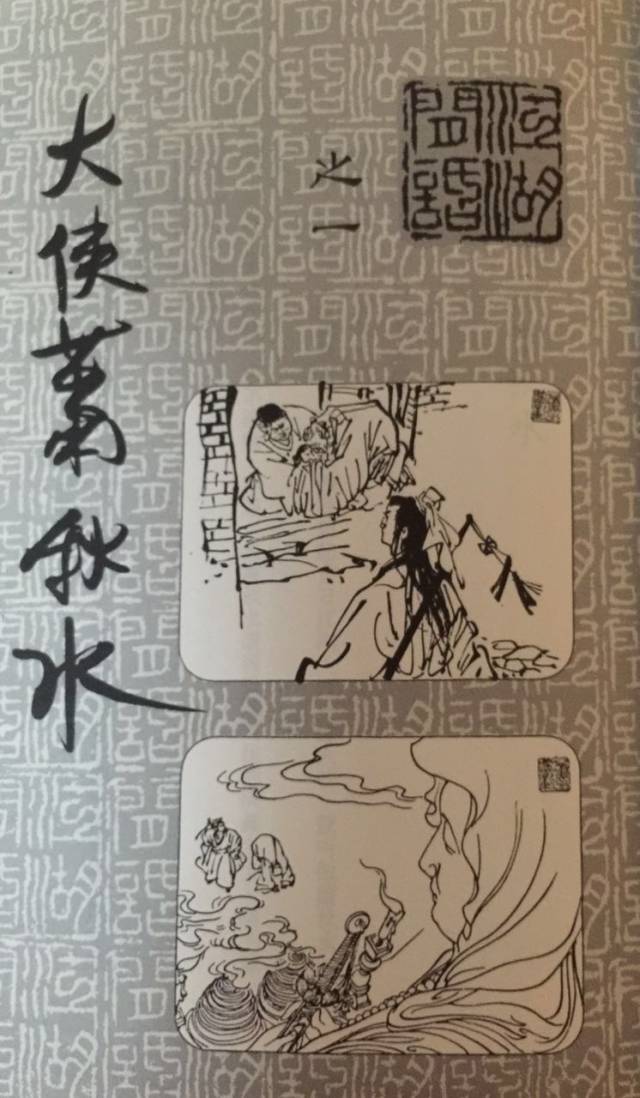 江湖閒話
之一
大侠萧秋水